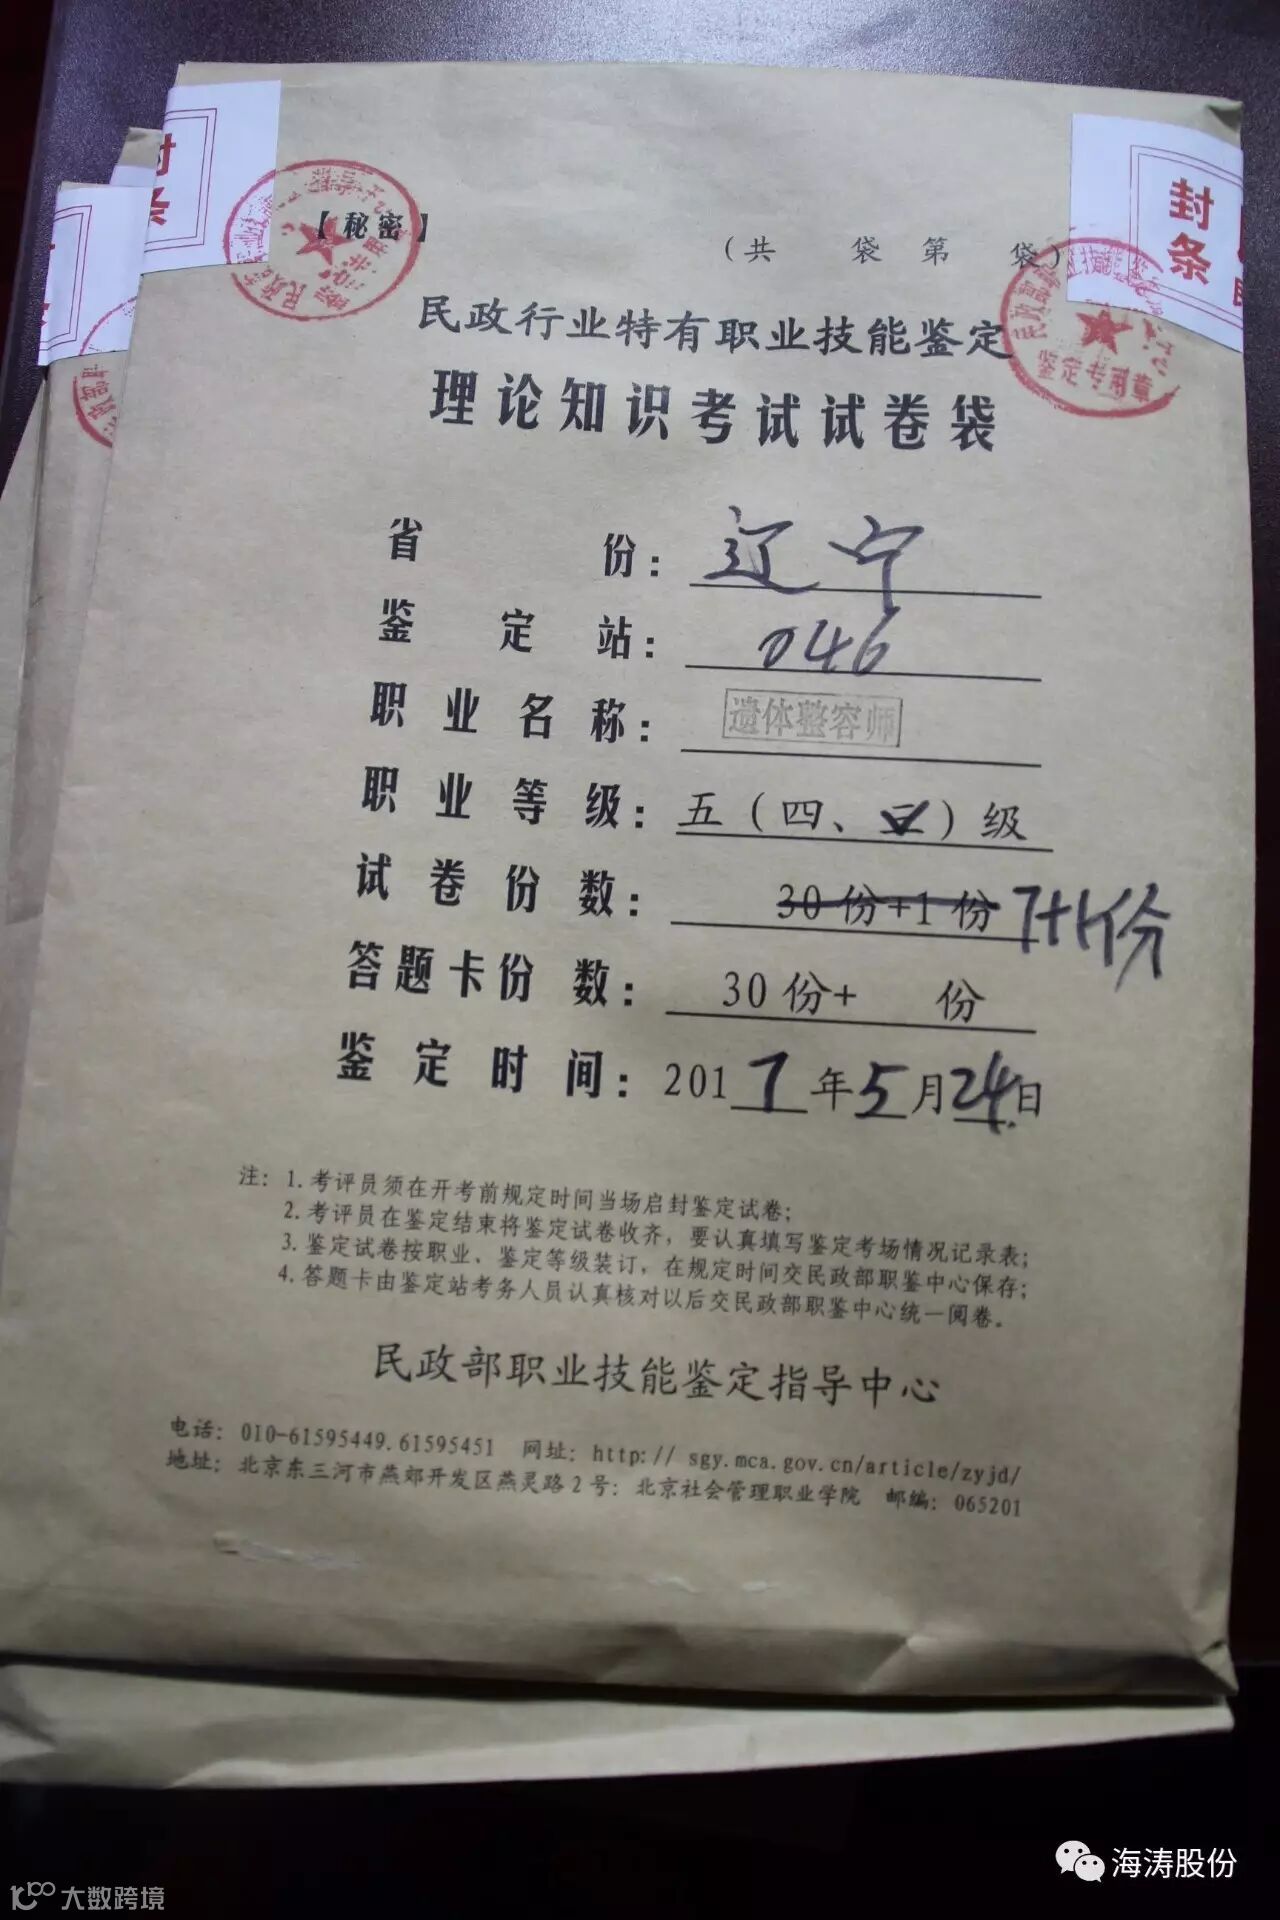 封条
封条
【秘密】
（共 袋 第 袋）
民政行业特有职业技能鉴定
鉴定专用章
理论知识考试试卷袋
省份：辽宁
鉴定站：046
职业名称：遗体整容师
职业等级：五（四、三）级
试卷份数：30份+1份 7+1份
答题卡份数：30份+ 份
鉴定时间：2017年5月24日
注：1.考评员须在开考前规定时间当场启封鉴定试卷；
2.考评员在鉴定结束将鉴定试卷收齐，要认真填写鉴定考场情况记录表；
3.鉴定试卷按职业、鉴定等级装订，在规定时间交民政部职鉴中心保存；
4.答题卡由鉴定站考务人员认真核对以后交民政部职鉴中心统一阅卷。
民政部职业技能鉴定指导中心
电话：010-61595449.61595451 网址：http://sgy.mca.gov.cn/article/zyjd/
地址：北京东三河市燕郊开发区燕灵路2号：北京社会管理职业学院 邮编：065201
海涛股份
大数跨境